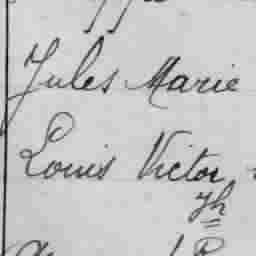 Jules Marie
Louis Victor
Jh